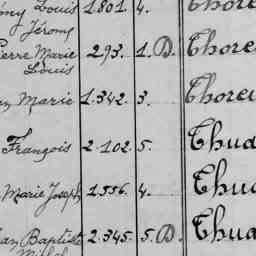 Louis 1.801. 4.
Jérome
Pierre Marie 293. 1. D. Thore
Louis
Marie 1.342. 3. Thore
François 2.102. 5. Thua
Marie Joseph 1.556. 4. Thua
Jean Baptiste 2.345. 5. D. Thua